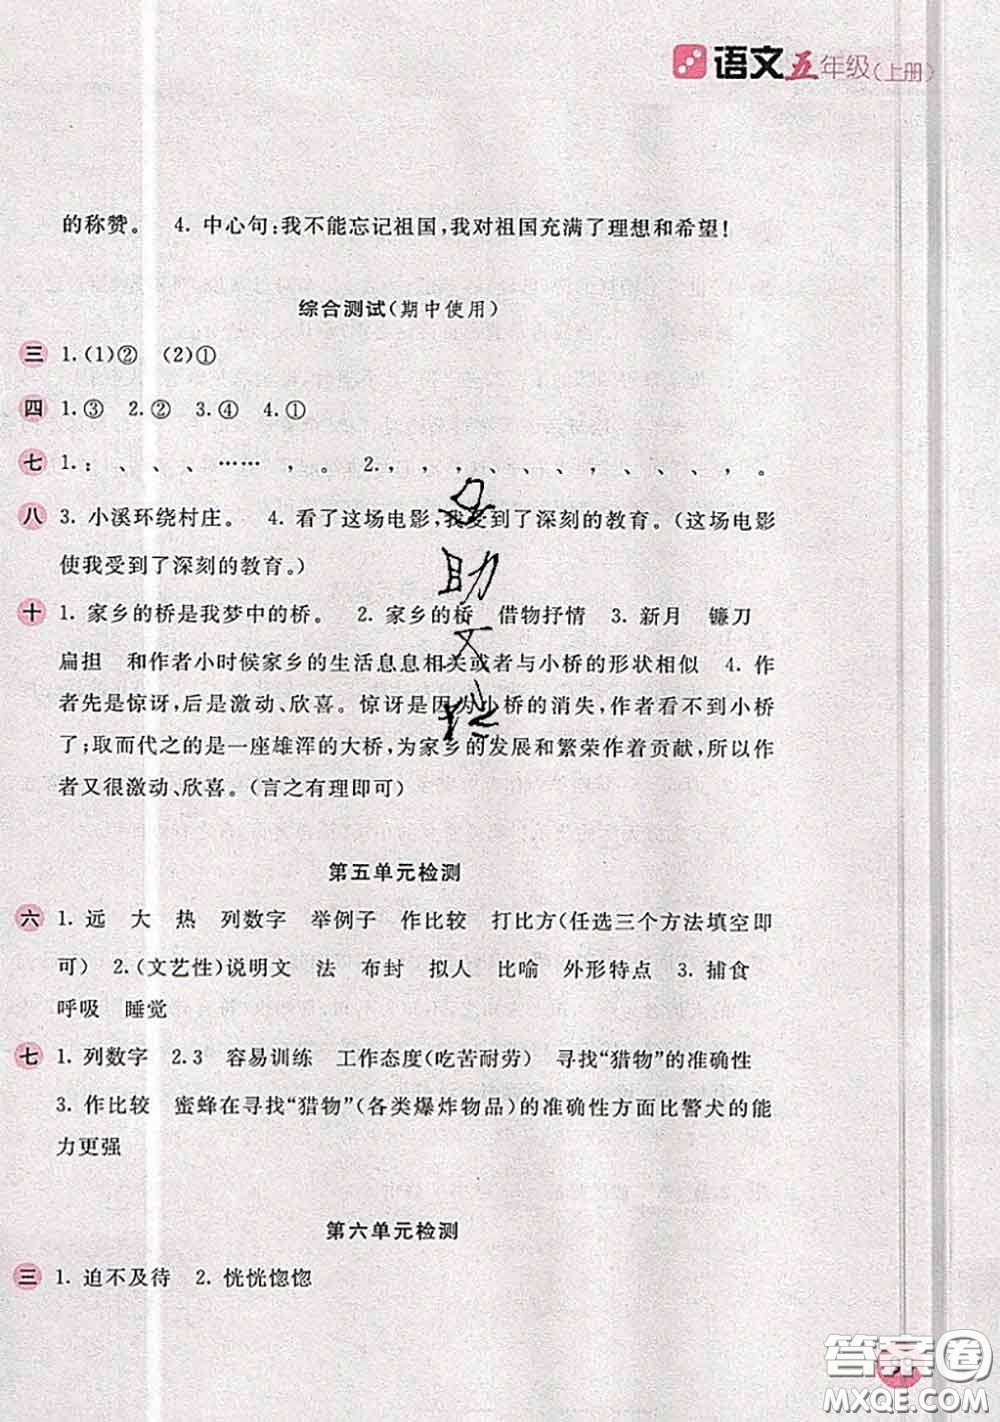 语文五年级(上册)
的称赞。 4. 中心句:我不能忘记祖国,我对祖国充满了理想和希望!
综合测试(期中使用)
三 1. (1)② (2)①
四 1. ③ 2. ② 3. ④ 4. ①
七 1. : 、 、 、 …… , 。 2. , , , 、 、 、 , 、 、 、 , 。
八 3. 小溪环绕村庄。 4. 看了这场电影,我受到了深刻的教育。(这场电影
使我受到了深刻的教育。)
十 1. 家乡的桥是我梦中的桥。 2. 家乡的桥 借物抒情 3. 新月 镰刀
扁担 和作者小时候家乡的生活息息相关或者与小桥的形状相似 4. 作
者先是惊讶,后是激动、欣喜。惊讶是因为小桥的消失,作者看不到小桥
了;取而代之的是一座雄浑的大桥,为家乡的发展和繁荣作着贡献,所以作
者又很激动、欣喜。(言之有理即可)
第五单元检测
六 1. 远 大 热 列数字 举例子 作比较 打比方(任选三个方法填空即
可) 2. (文艺性)说明文 法 布封 拟人 比喻 外形特点 3. 捕食
呼吸 睡觉
七 1. 列数字 2. 3 容易训练 工作态度(吃苦耐劳) 寻找“猎物”的准确性
3. 作比较 蜜蜂在寻找“猎物”(各类爆炸物品)的准确性方面比警犬的能
力更强
第六单元检测
三 1. 迫不及待 2. 恍恍惚惚
答案圈
MXQE.COM